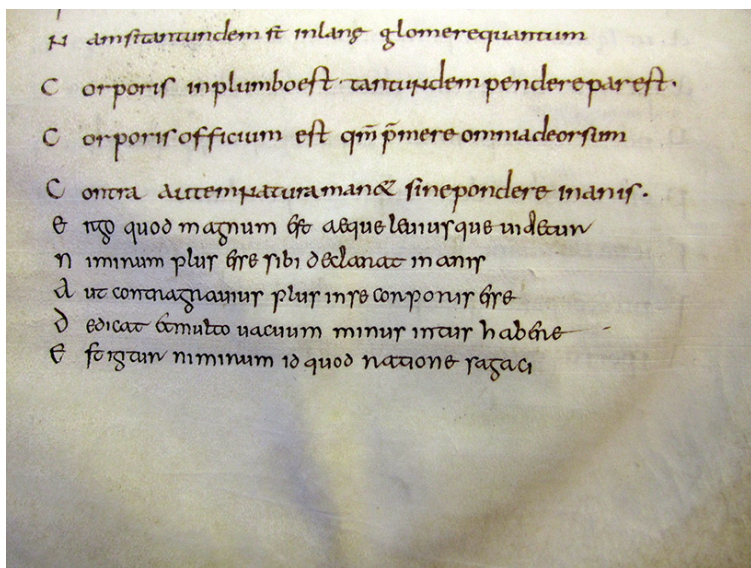 N amsitantundem st inlane glomerequantum
C orporis inplumboest tantundem pendereparest.
C orporisofficium est qm̅ p̅mere omniadeorsum
C ontra autemnaturaman& sinepondere inanis.
E rgo quod magnum est aeque leuiusque uidetur
N iminum plus esse sibi declarat inanis
A ut contragrauius plus inse corporis esse
D edicat &multo uacuum minus intus habere
E stigtur niminum id quod ratione sagaci